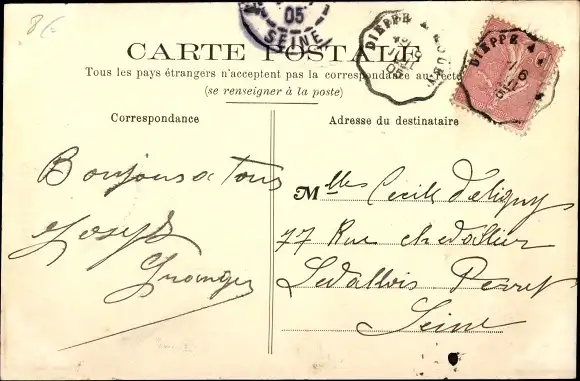 8
05
SEINE
CARTE POSTALE
Tous les pays étrangers n'acceptent pas la correspondance au recto
(se renseigner à la poste)
DIEPPE A
DIEPPE A
Correspondance
Adresse du destinataire
Bonjours a Tous
Joseph
Melles Cecile d'etigny
77 Rue chevallier
Levallois Perret
Seine